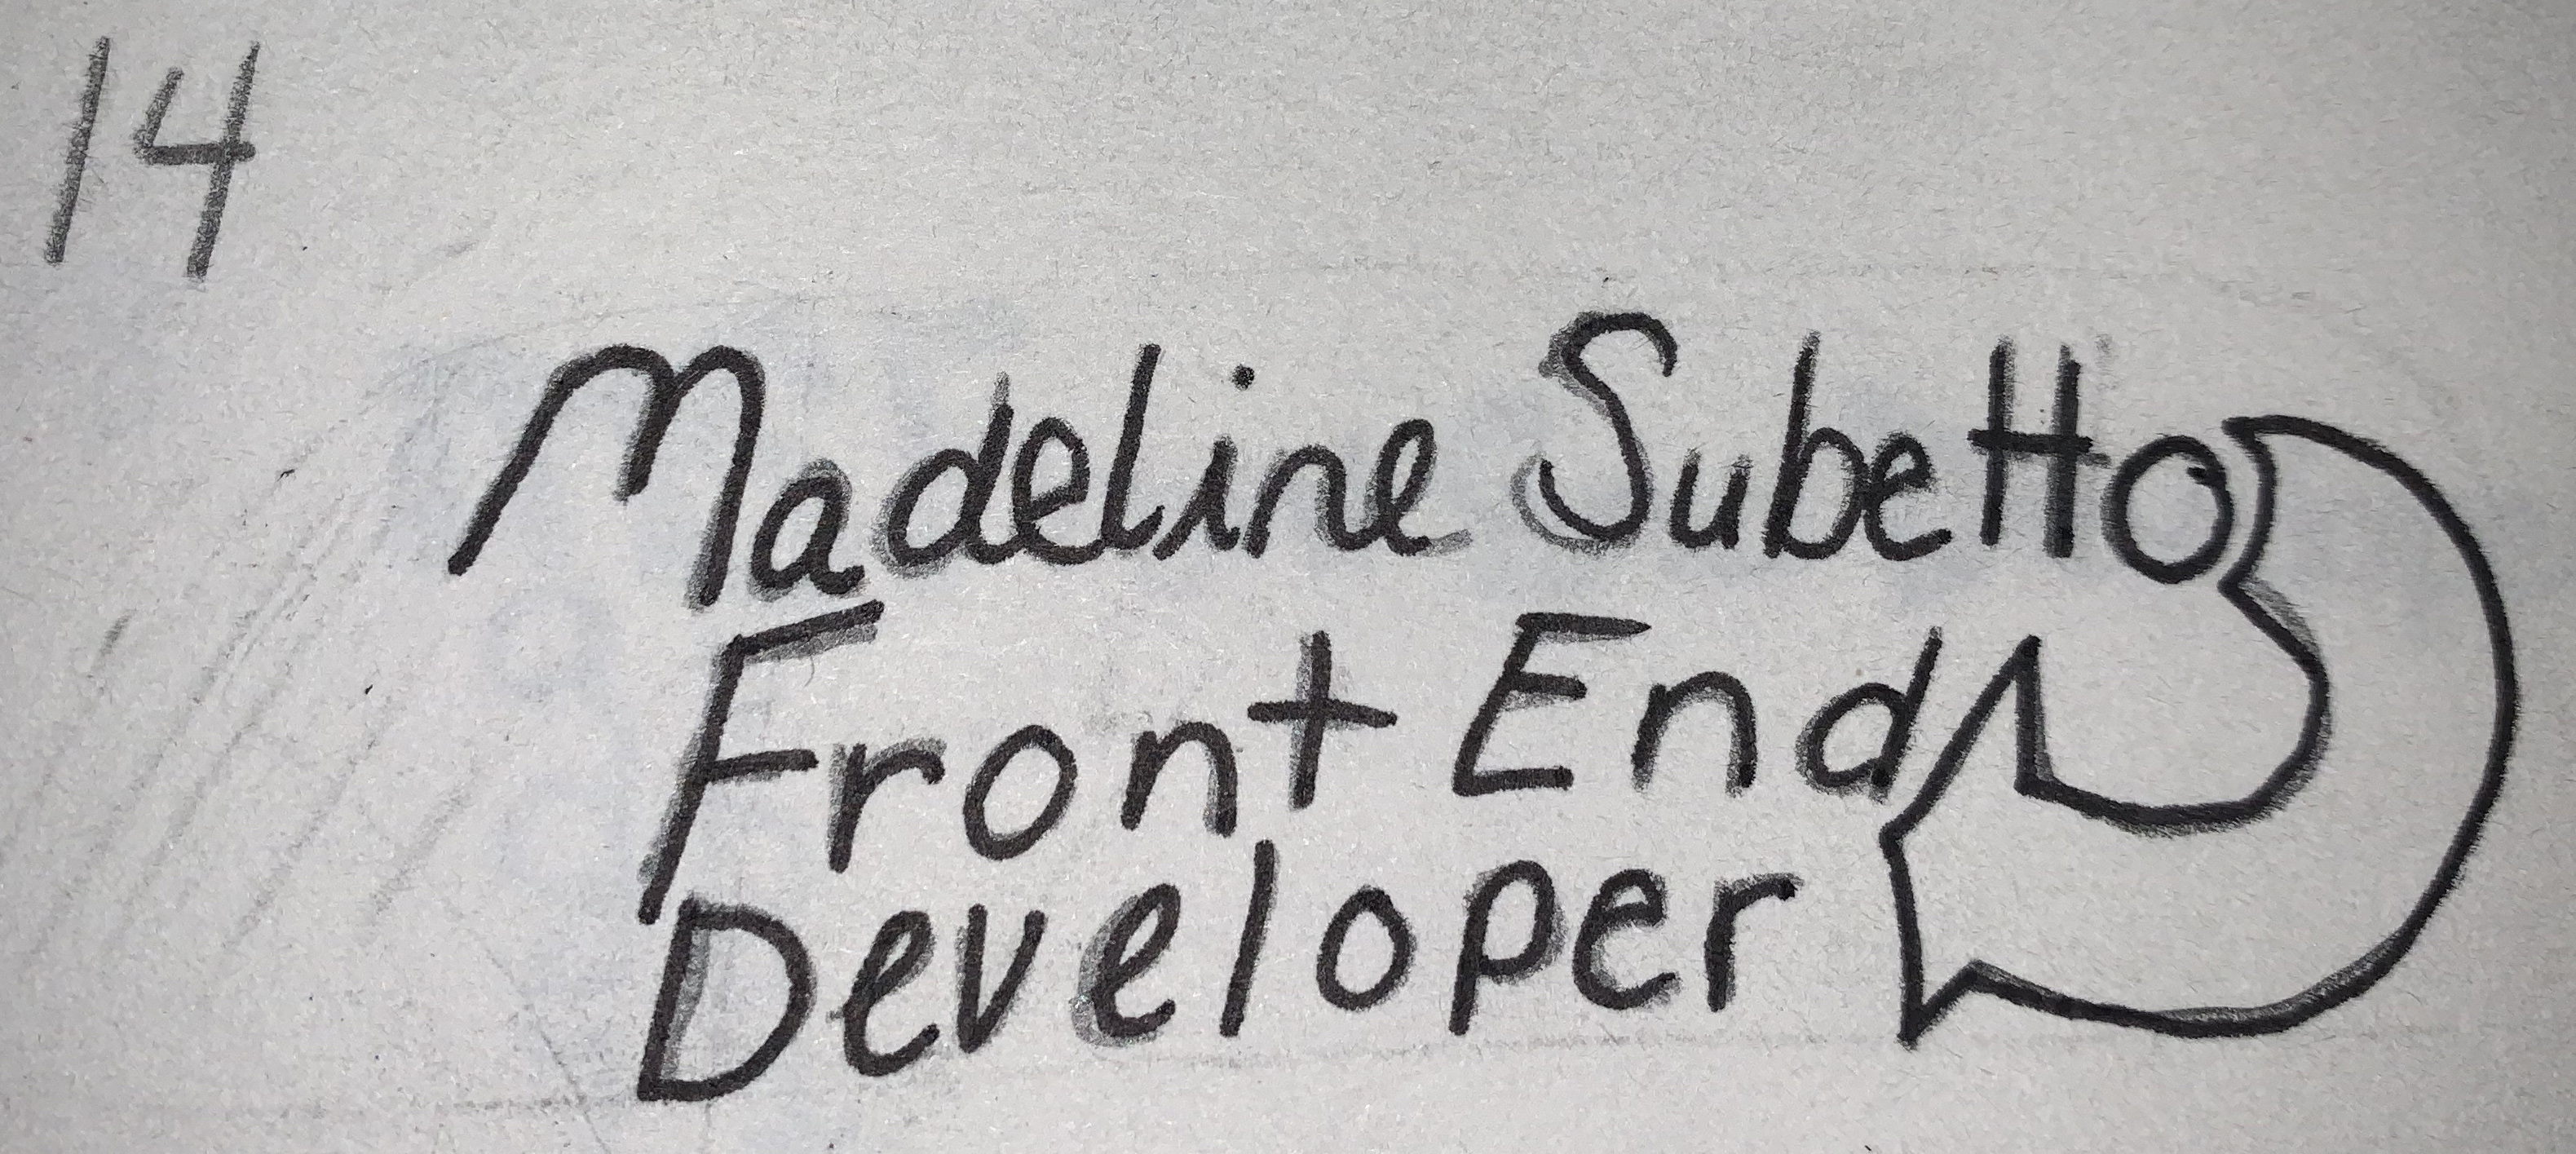 14
Madeline Subetto
Front End
Developer